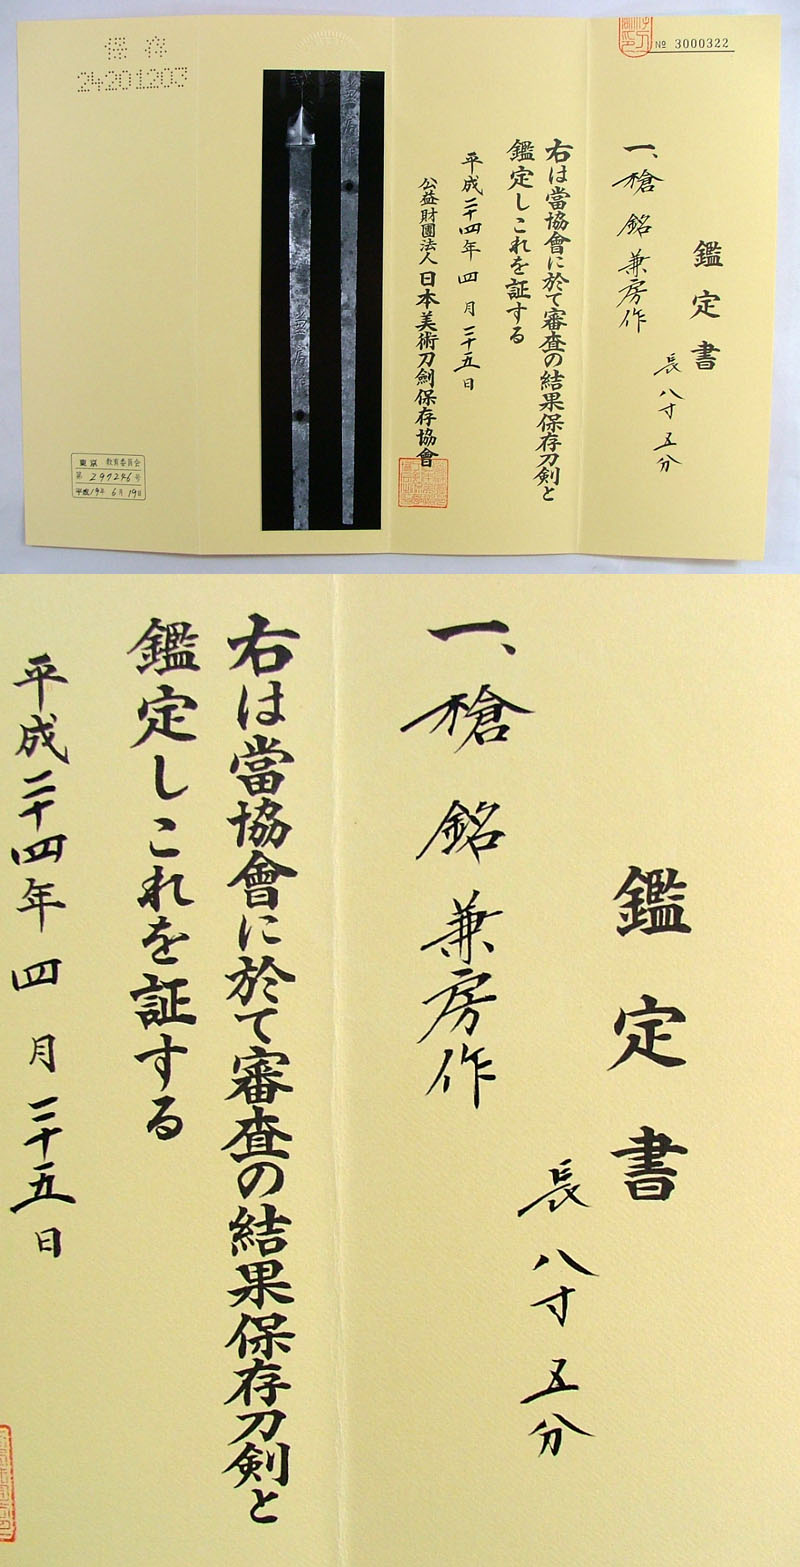 № 3000322
鑑定書
一、槍 銘 兼房作
長 八寸 五分
右は當協會に於て審査の結果保存刀剣と
鑑定しこれを証する
平成二十四年 四 月 二十五日
公益財團法人 日本美術刀劍保存協會
兼房作
保存
24201203
東京 教育委員会
第 297246 号
平成19年 6月 19日
鑑定書
一、槍 銘 兼房作
長 八寸 五分
右は當協會に於て審査の結果保存刀剣と
鑑定しこれを証する
平成二十四年 四 月 二十五日